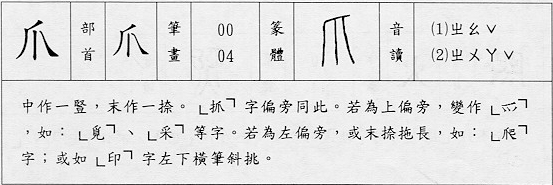 爪 部首 爪 筆畫 00 04 篆體 爪 音讀 (1)ㄓㄠˇ (2)ㄓㄨㄚˇ
中作一豎，末作一捺。「抓」字偏旁同此。若為上偏旁，變作「爫」
，如：「覓」、「采」等字。若為左偏旁，或末捺拖長，如：「爬」
字；或如「印」字左下橫筆斜挑。